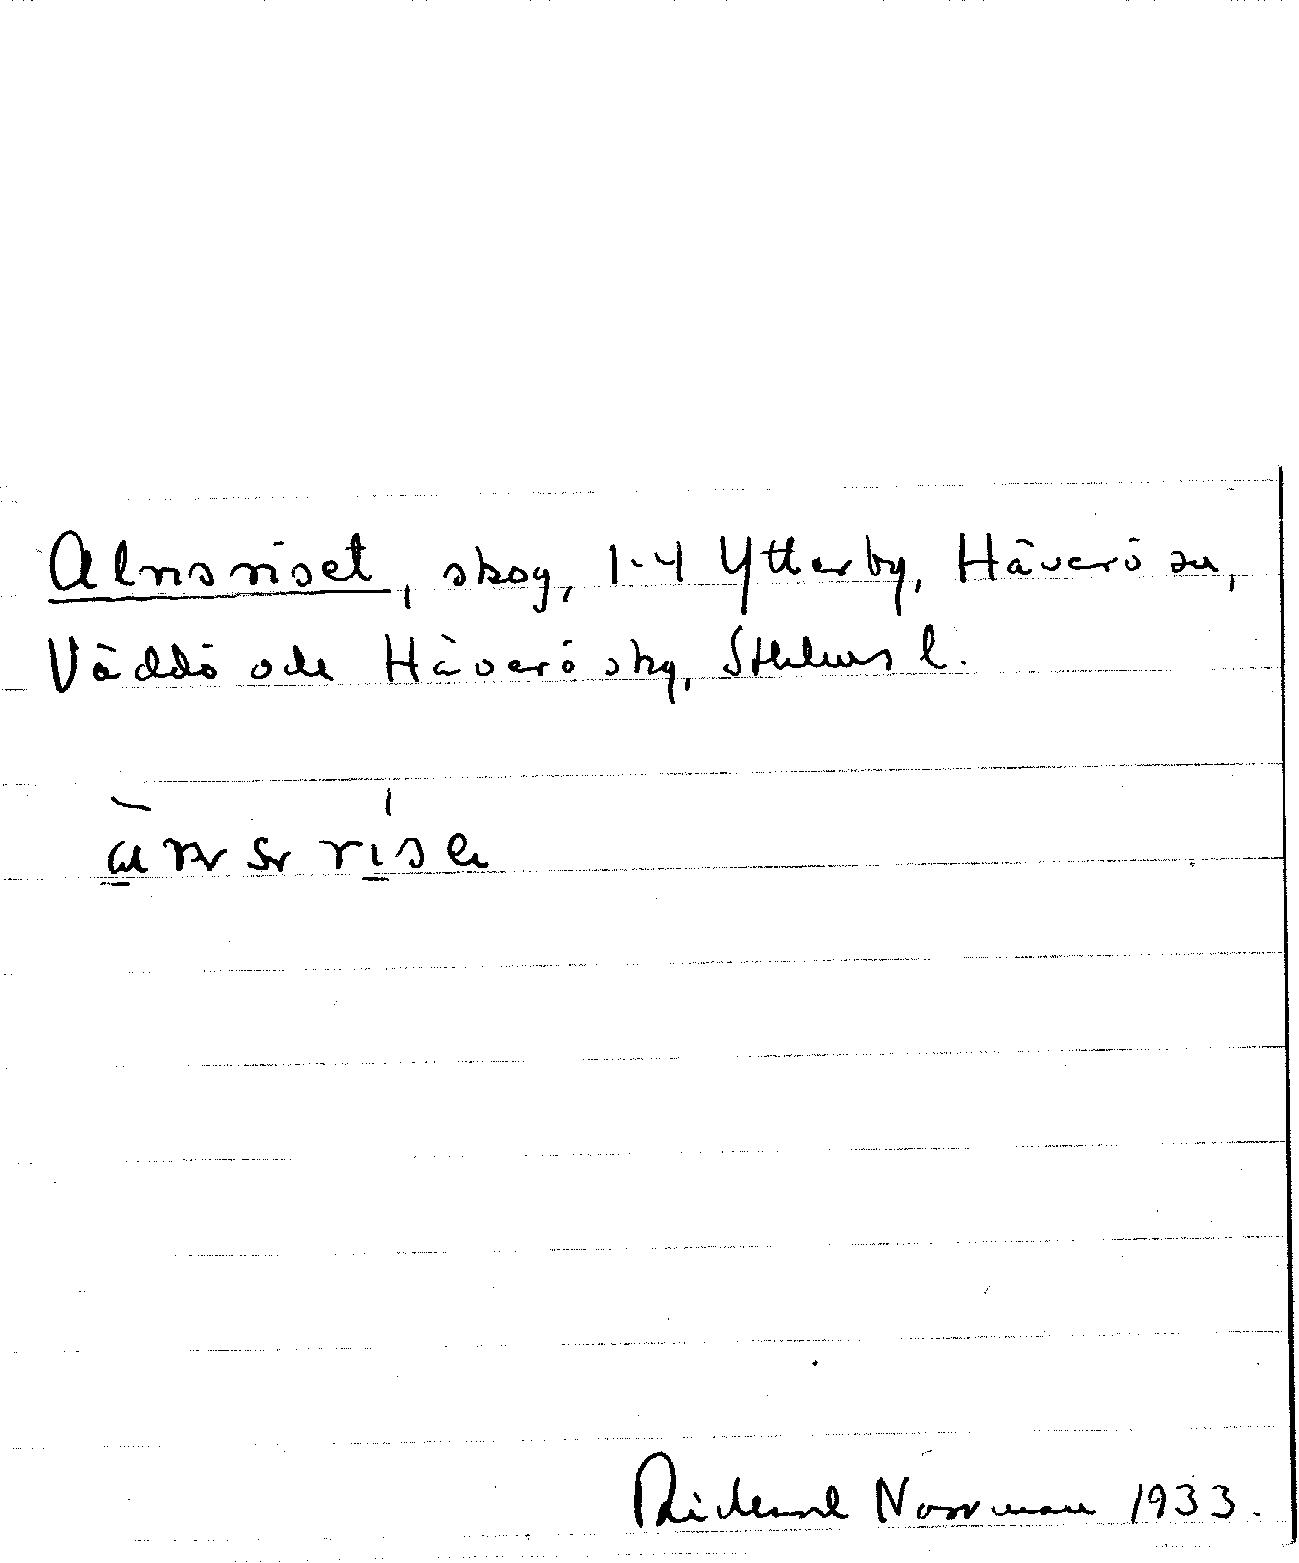 Alnsriset, skog, 1-4 Ytterby, Häverö sn,
Väddö och Häverö skg, Sthlms l.
Rickard Norrman 1933.